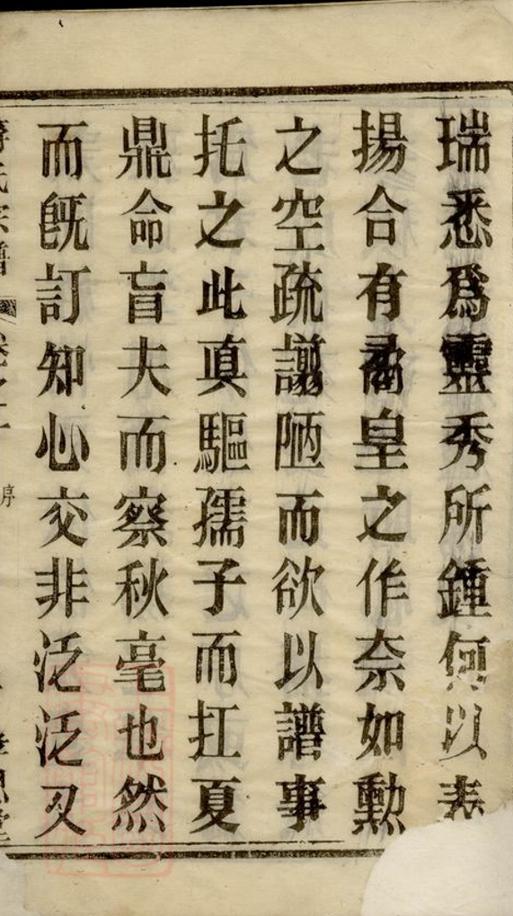 瑞悉爲靈秀所鍾何以表
揚合有矞皇之作奈如勲
之空疏譾陋而欲以譜事
托之此真驅孺子而扛夏
鼎命盲夫而察秋毫也然
而旣訂知心交非泛泛又
氏宗譜 卷之二 序